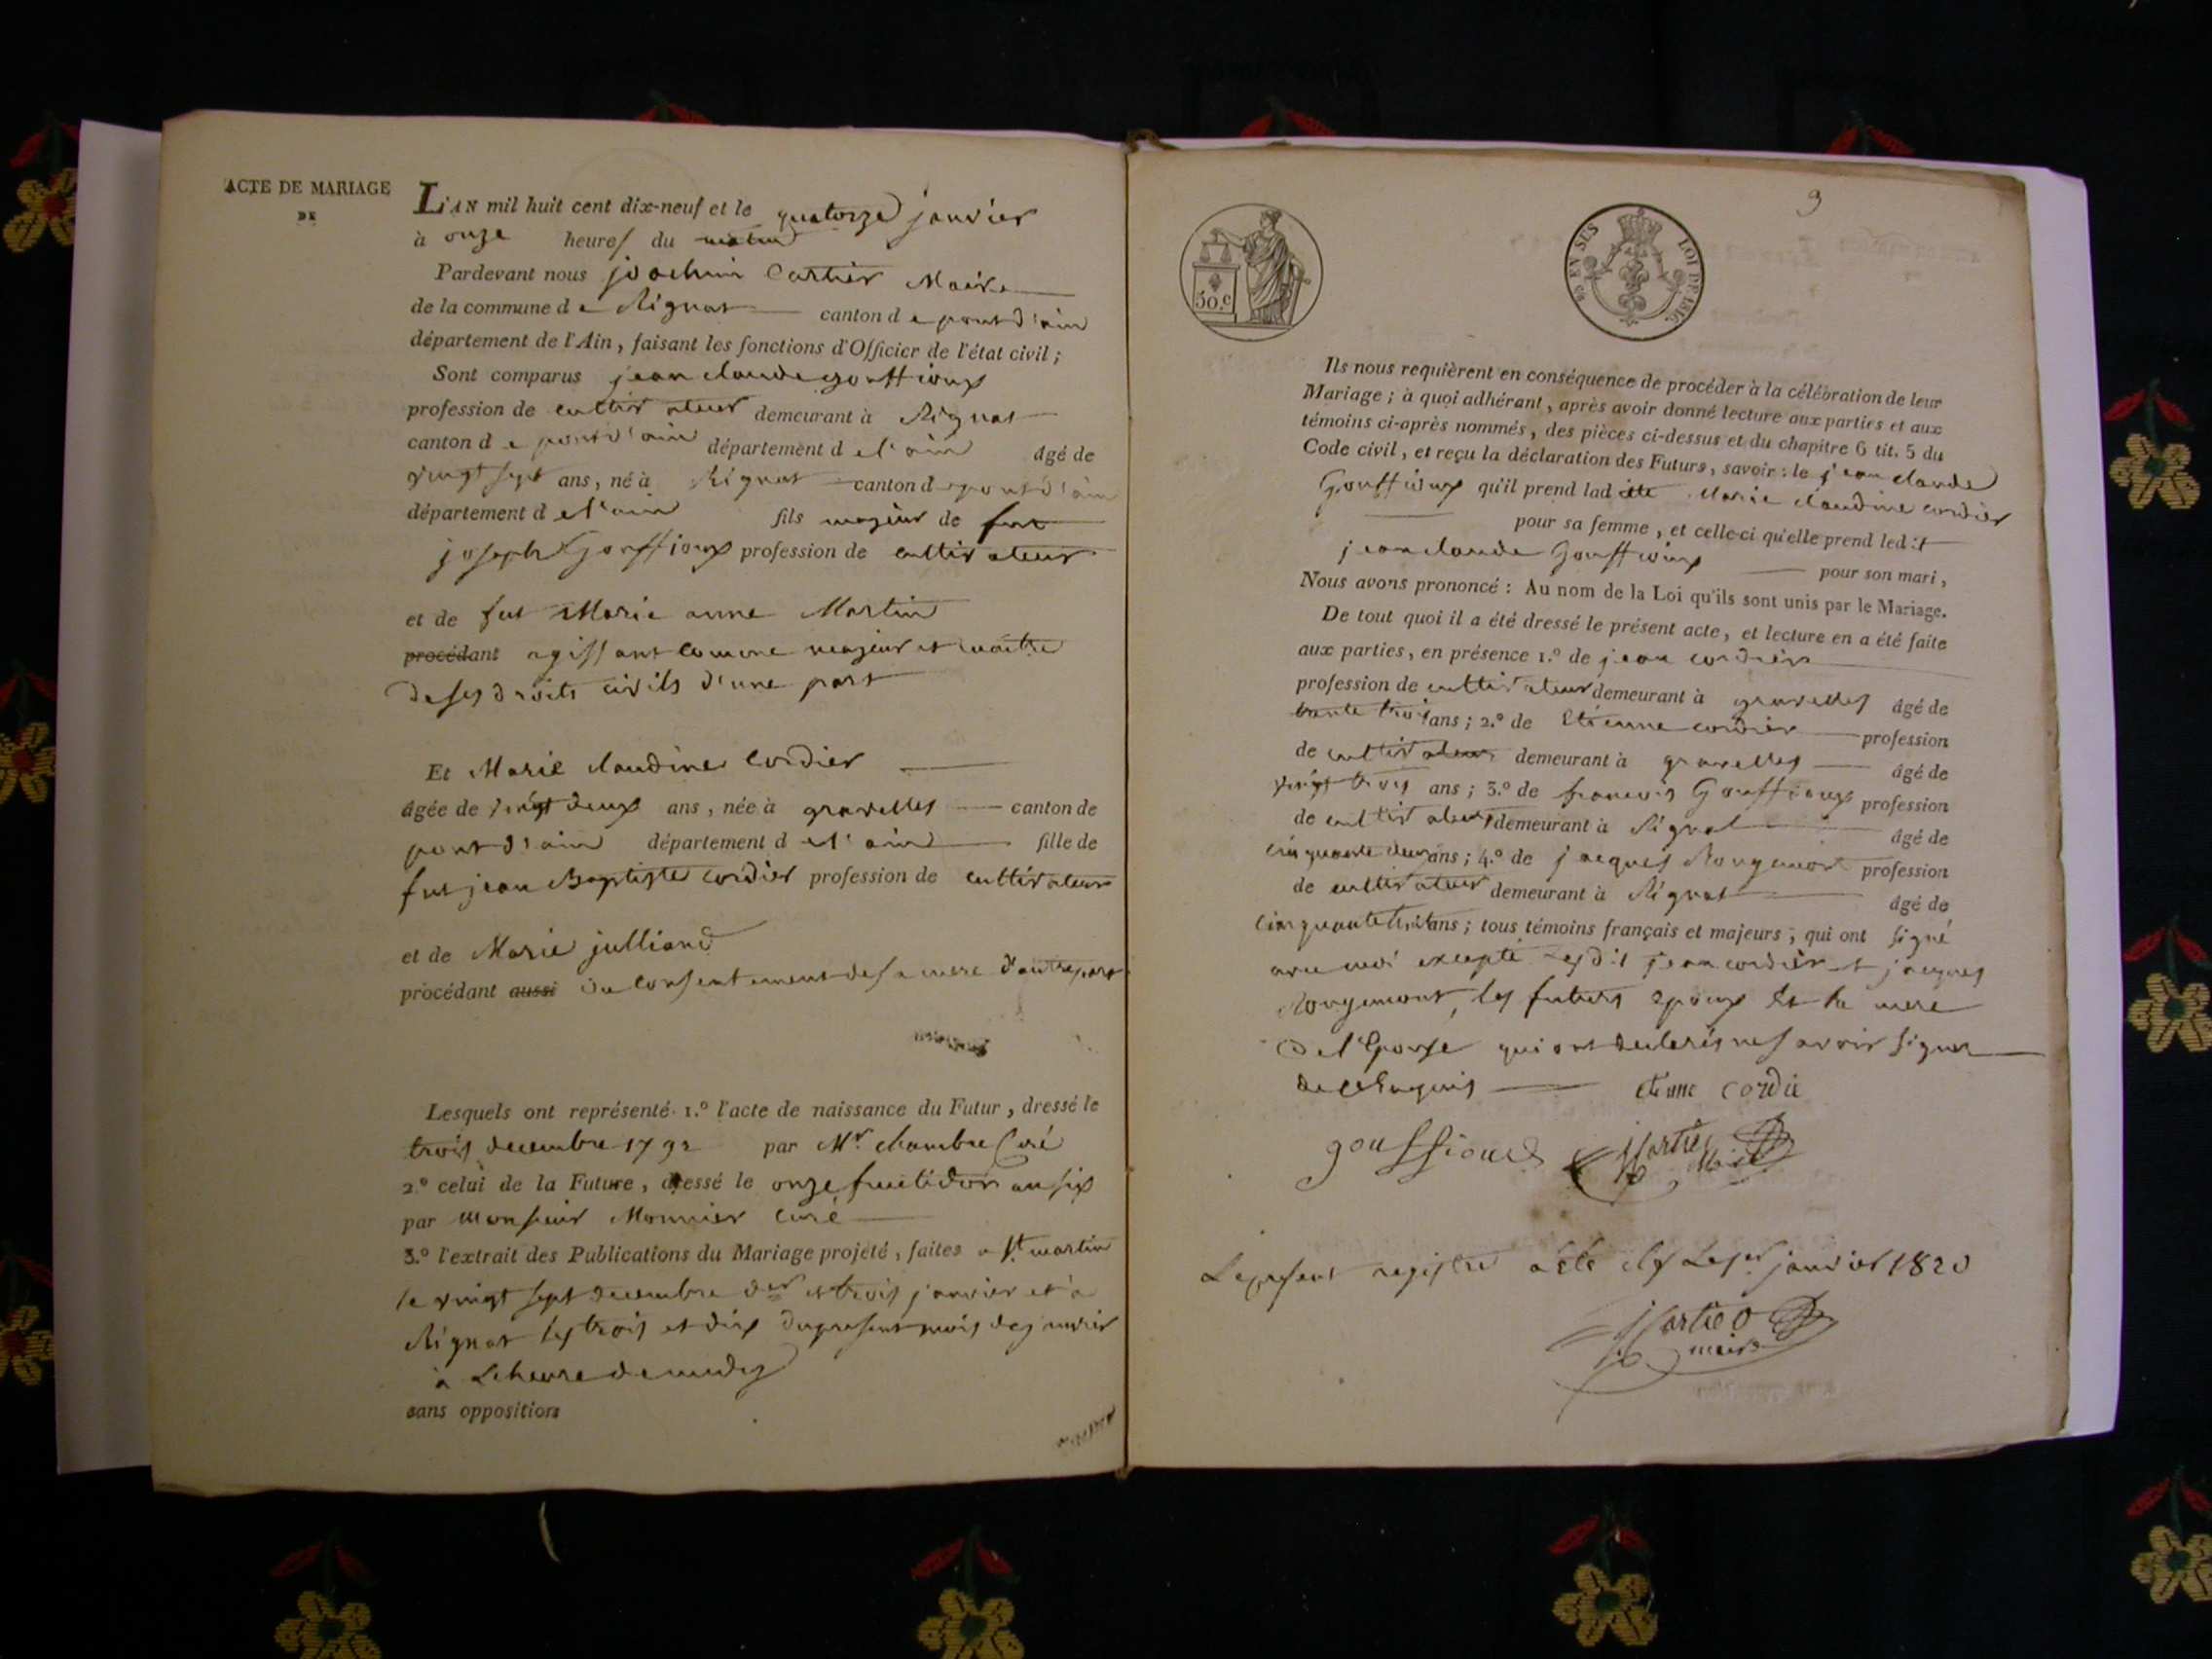 ACTE DE MARIAGE
DE
L'AN mil huit cent dix-neuf et le quatorze janvier
à onze heures du matin
Pardevant nous joachim Cartier Maire
de la commune de Rignat canton de pont d'ain
département de l'Ain, faisant les fonctions d'Officier de l'état civil ;
Sont comparus jean claude gouffioux
profession de cultivateur demeurant à Rignat
canton de pont d'ain département de l'ain âgé de
vingt sept ans, né à Rignat canton de pont d'ain
département de l'ain fils majeur de fut
joseph Gouffioux profession de cultivateur
et de fut Marie anne Martin
procédant agissant comme majeur et maitre
de ses droits civils d'une part
Et Marie claudine Cordier
âgée de vingt deux ans, née à gravelles canton de
pont d'ain département de l'ain fille de
fut jean Baptiste cordier profession de cultivateur
et de Marie julliand
procédant aussi du consentement de sa mere d'autre part
Lesquels ont représenté 1.º l'acte de naissance du Futur, dressé le
trois decembre 1792 par Mr. chambre Curé
2.º celui de la Future, dressé le onze fructidor an six
par Monsieur Monnier curé
3.º l'extrait des Publications du Mariage projeté, faites a St. martin
le vingt sept decembre der et trois janvier et à
Rignat les trois et dix du present mois de janvier
à L'heure de midy
sans opposition
9
50.c
LOI DE 1816.
Ils nous requièrent en conséquence de procéder à la célébration de leur
Mariage ; à quoi adhérant, après avoir donné lecture aux parties et aux
témoins ci-après nommés, des pièces ci-dessus et du chapitre 6 tit. 5 du
Code civil, et reçu la déclaration des Futurs, savoir : le jean claude
Gouffioux qu'il prend ladite Marie claudine cordier
pour sa femme, et celle-ci qu'elle prend ledit
jean claude Gouffioux pour son mari,
Nous avons prononcé : Au nom de la Loi qu'ils sont unis par le Mariage.
De tout quoi il a été dressé le présent acte, et lecture en a été faite
aux parties, en présence 1.º de jean cordier
profession de cultivateur demeurant à gravelles âgé de
trante trois ans ; 2.º de Etienne cordier profession
de cultivateur demeurant à gravelles âgé de
vingt trois ans ; 3.º de francois Gouffioux profession
de cultivateur demeurant à Rignat âgé de
cinquante deux ans ; 4.º de jacques Rougemont profession
de cultivateur demeurant à Rignat âgé de
cinquante huit ans ; tous témoins français et majeurs, qui ont signé
avec moi excepté lesdit jean cordier et jacques
Rougemont, les futurs epoux et la mere
de l'Epouse qui ont declarés ne savoir signer
de ce Enquis etienne cordie
gouffioux Jcartier Maire
Le present registre a été clos Le 1er janvier 1820
Jcartier
maire